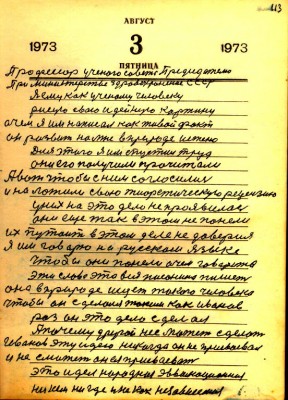 113
АВГУСТ
1973 3 1973
ПЯТНИЦА
Профессор ученого совета Председателю
При Министерстве здравохронение СССР
Я ему как ученому человеку
рисую свою идейную картину
о чем я им написал как живой факт
он развит на же в природе
Для этого я им труд
они его получили прочитали
А вот чтобы с ним согласились
и наложили свою теоретическую
у них на это дело не проявилась
они еще так в этом не поняли
их путают в этом деле не доверия
Я им говорю на русском языке
чтобы они поняли о чем говорится
Эти слова это вся пишет
она в природе ищет такого человека
чтобы он сделался таким как иванов
раз он это дело сделал
А почему другой не может сделать
Иванов эту идею никогда он не присваивал
и не он присваевать
это идея народная Эволюционная
ни кем нигде и не как